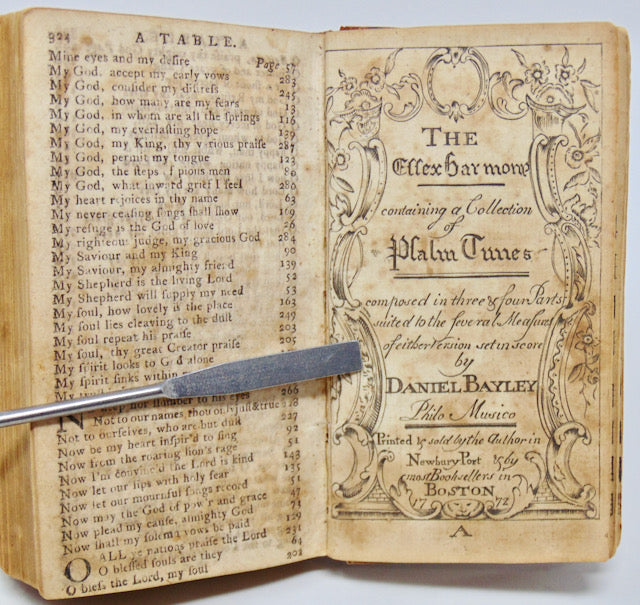 324 A TABLE.
Mine eyes and my desire Page 57
My God, accept my early vows 283
My God, consider my distress 245
My God, how many are my fears 13
My God, in whom are all the springs 116
My God, my everlasting hope 139
My God, my King, thy various praise 287
My God, permit my tongue 123
My God, the steps of pious men 80
My God, what inward grief I feel 280
My heart rejoices in thy name 63
My never ceasing songs shall show 169
My refuge is the God of love 26
My righteous judge, my gracious God 284
My Saviour and my King 90
My Saviour, my almighty friend 139
My Shepherd is the living Lord 52
My Shepherd will supply my need 53
My soul, how lovely is the place 163
My soul lies cleaving to the dust 249
My soul repeat his praise 203
My soul, thy great Creator praise 205
My spirit looks to God alone
My spirit sinks within
slumber to his eyes 266
Not to our names, thou only just & true 228
Not to ourselves, who are but dust 227
Now be my heart inspir'd to sing 92
Now from the roaring lion's rage 51
Now I'm convinc'd the Lord is kind 143
Now let our lips with holy fear 135
Now let our mournful songs record 51
Now may the God of pow'r and grace 47
Now plead my cause, almighty God 71
Now shall my solemn vows be paid 129
O ALL ye nations praise the Lord 231
O blessed souls are they 64
O bless the Lord, my soul 202
THE
Essex Harmony
containing a Collection
of
Psalm Tunes
composed in three & four Parts
suited to the several Measures
of either Version set in Score
by
DANIEL BAYLEY
Philo Musico
Printed & sold by the Author in
Newbury Port & by
most Booksellers in
BOSTON
1772
A